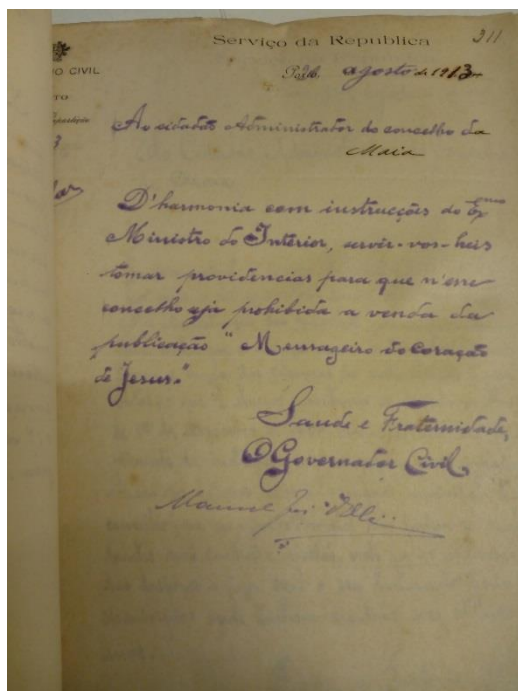 Serviço da Republica
211
O CIVIL
agosto de 1913
Ao cidadão Administrador do concelho da
Maia
D'harmonia com instrucções do Exmo
Ministro do Interior, servir-vos-heis
tomar providencias para que n'esse
concelho seja prohibida a venda da
publicação "Mensageiro do Coração
de Jesus."
Saude e Fraternidade,
O Governador Civil
Manuel